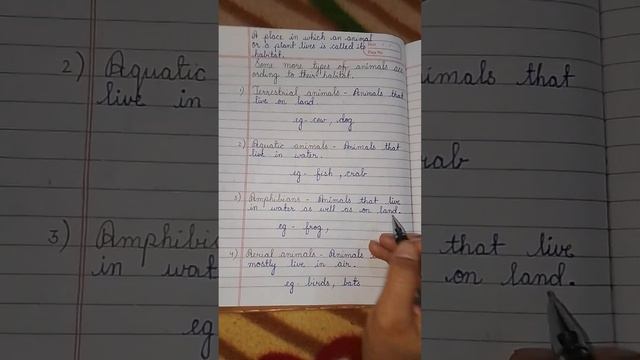 A place in which an animal
or a plant lives is called its
habitat.
Some more types of animals acc
ording to their habitat.
1) Terrestrial animals - Animals that
live on land.
eg - cow, dog
2) Aquatic animals - Animals that
live in water.
eg - fish, crab
3) Amphibians - Animals that live
in water as well as on land.
eg - frog,
4) Aerial animals - Animals
mostly live in air.
eg - birds, bats